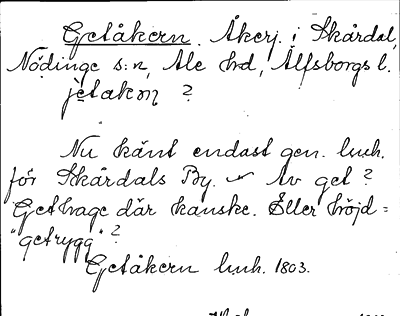 Getåkern. Åkerj. i Skårdal,
Nödinge s:n, Ale hd, Älfsborgs l.
jetakөn ?
Nu känt endast gen. luuh.
för Skårdals By. Av get ?
Gethage där kanske. Eller höjd =
"getrygg" ?
Getåkern luuh. 1803.